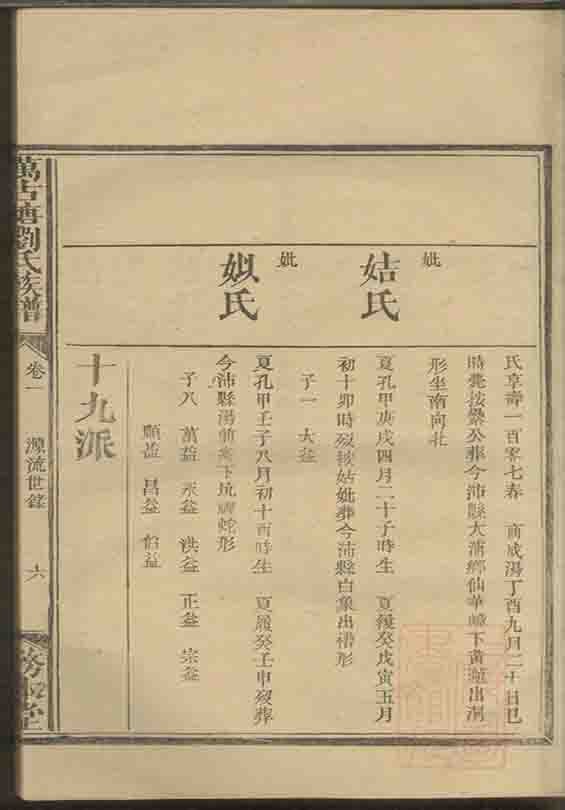 氏享壽一百零七春 商成湯丁酉九月二十日巳
時薨按纍公葬今沛縣大蒲鄉仙華嶂下黃龍出洞
形坐南向北
妣
姞氏
夏孔甲庚戌四月二十子時生 夏履癸戊寅五月
初十卯時歿按姞妣葬今沛縣白象出槽形
子一 大益
妣
姒氏
夏孔甲壬子八月初十酉時生 夏履癸壬申歿葬
今沛縣湯前案下坑蛇形
子八 萬益 永益 洪益 正益 宗益
顯益 昌益 伯益
十九派
萬古塘劉氏族譜
卷一 源流世錄 六
堂